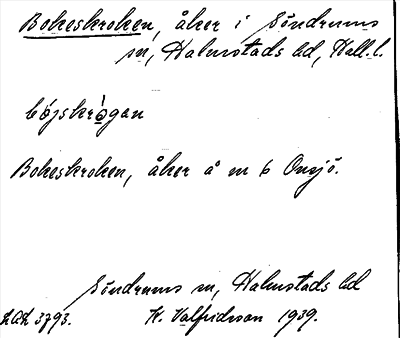 Bokeskroken, åker i Söndrums
sn, Halmstads hd, Hall.l.
bo̗jskrò̗gan
Bokeskroken, åker å nr 6 Onsjö.
Söndrums sn, Halmstads hd
LAL 3793. K. Valfridsson 1939.